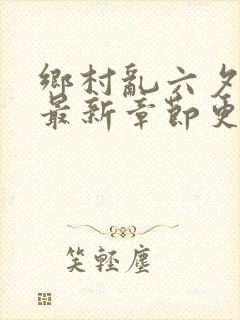 鄉村亂六夕
最新章節更
笑輕塵